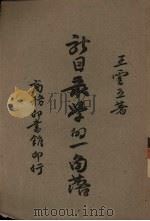 王雲五著
新目錄學的一角落
商務印書館印行